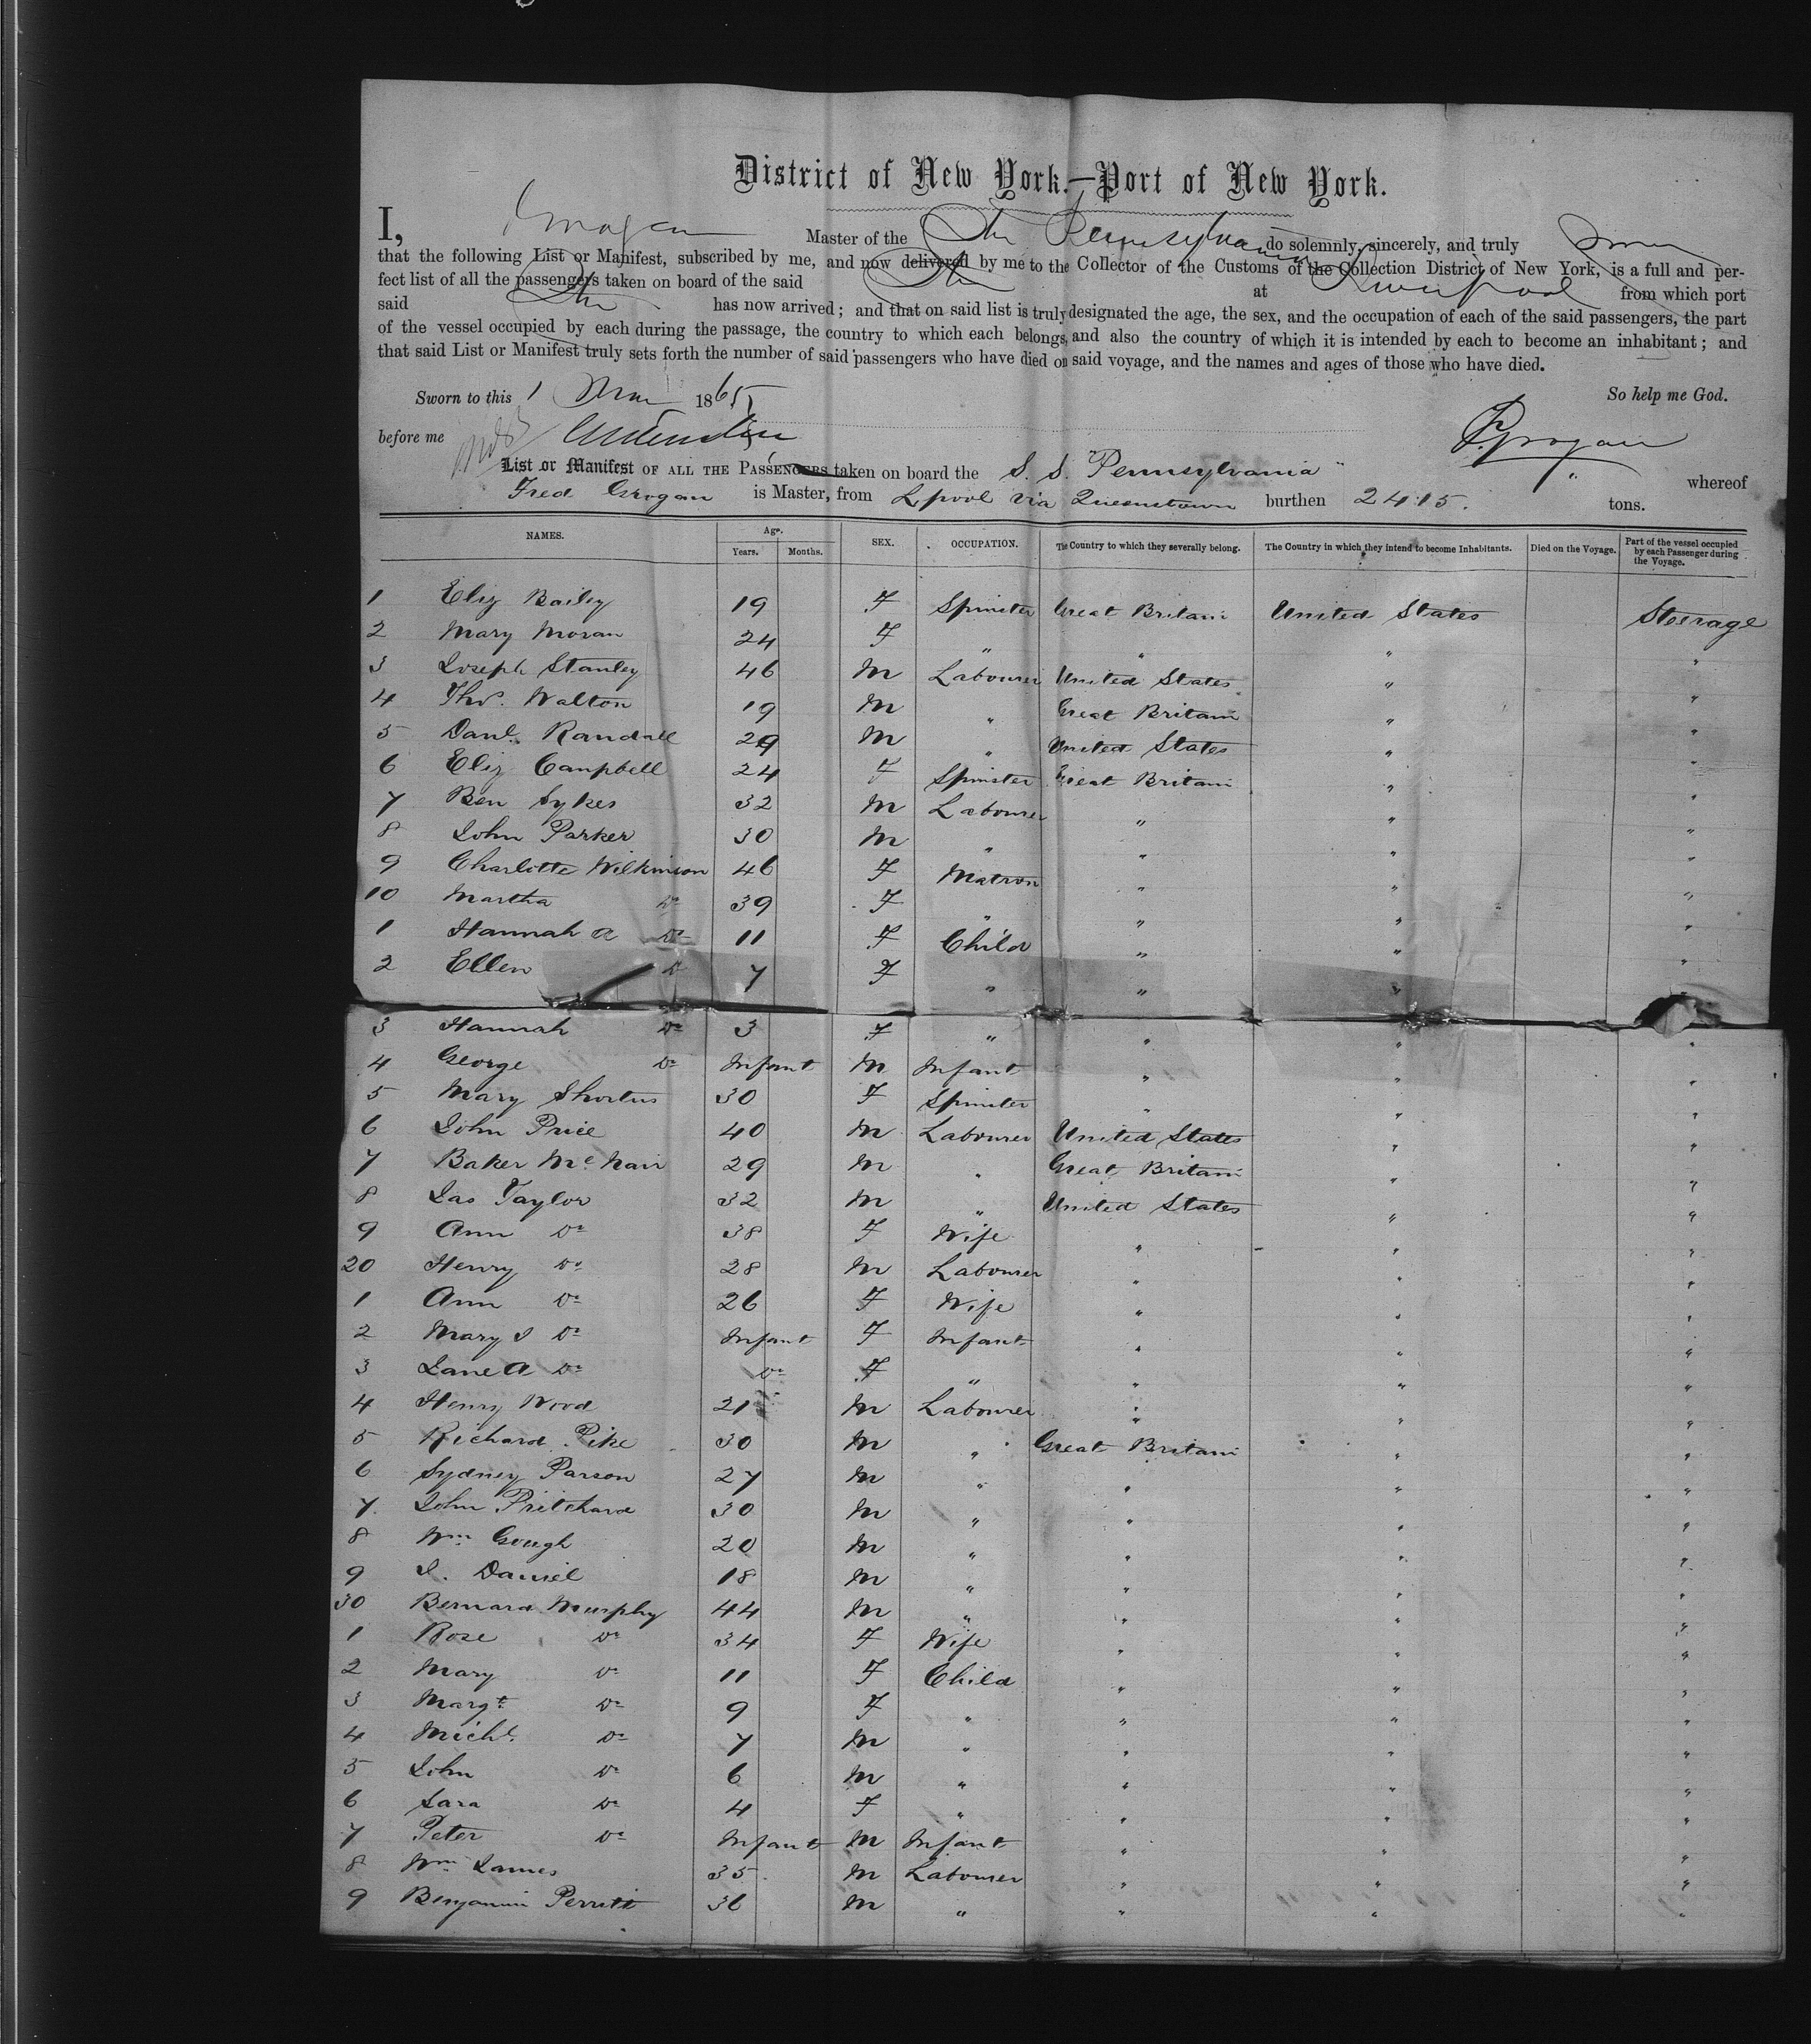 District of New York.—Port of New York.
I, Grogan Master of the Str Pennsylvania do solemnly, sincerely, and truly swear
that the following List or Manifest, subscribed by me, and now delivered by me to the Collector of the Customs of the Collection District of New York, is a full and per-
fect list of all the passengers taken on board of the said Str at Liverpool from which port
said Str has now arrived; and that on said list is truly designated the age, the sex, and the occupation of each of the said passengers, the part
of the vessel occupied by each during the passage, the country to which each belongs, and also the country of which it is intended by each to become an inhabitant; and
that said List or Manifest truly sets forth the number of said passengers who have died on said voyage, and the names and ages of those who have died.
Sworn to this 1 1865 So help me God.
before me F. Grogan
List or Manifest OF ALL THE PASSENGERS taken on board the S. S. "Pennsylvania" whereof
Fred Grogan is Master, from Lpool via Queenstown burthen 2415. tons.
NAMES. Age. Years. Months. SEX. OCCUPATION. The Country to which they severally belong. The Country in which they intend to become Inhabitants. Died on the Voyage. Part of the vessel occupied by each Passenger during the Voyage.
1 Eliz Bailey 19 F Spinster Great Britain United States Steerage
2 Mary Moran 24 F " " " "
3 Joseph Stanley 46 M Labourer United States " "
4 Thos. Walton 19 M " Great Britain " "
5 Danl. Randall 29 M " United States " "
6 Eliz Campbell 24 F Spinster Great Britain " "
7 Ben Sykes 32 M Labourer " " "
8 John Parker 30 M " " " "
9 Charlotte Wilkinson 46 F Matron " " "
10 Martha Do 39 F " " " "
1 Hannah A Do 11 F Child " " "
2 Ellen Do 7 F " " "
3 Hannah Do 3 F " " " "
4 George Do Infant M Infant " " "
5 Mary Shortus 30 F Spinster " " "
6 John Price 40 M Labourer United States " "
7 Baker McNair 29 M " Great Britain " "
8 Jas Taylor 32 M " United States " "
9 Ann Do 38 F Wife " " "
20 Henry Do 28 M Labourer " " "
1 Ann Do 26 F Wife " " "
2 Mary J Do Infant F Infant " " "
3 Jane A Do Do F " " " "
4 Henry Wood 21 M Labourer " " "
5 Richard Pike 30 M " Great Britain " "
6 Sydney Parson 27 M " " " "
7 John Pritchard 30 M " " " "
8 Wm Gough 20 M " " " "
9 J. Daniel 18 M " " " "
30 Bernard Murphy 44 M " " " "
1 Rose Do 34 F Wife " " "
2 Mary Do 11 F Child " " "
3 Margt. Do 9 F " " " "
4 Michl. Do 7 M " " " "
5 John Do 6 M " " " "
6 Sara Do 4 F " " " "
7 Peter Do Infant M Infant " " "
8 Wm James 35 M Labourer " " "
9 Benjamin Perritt 36 M " " " "